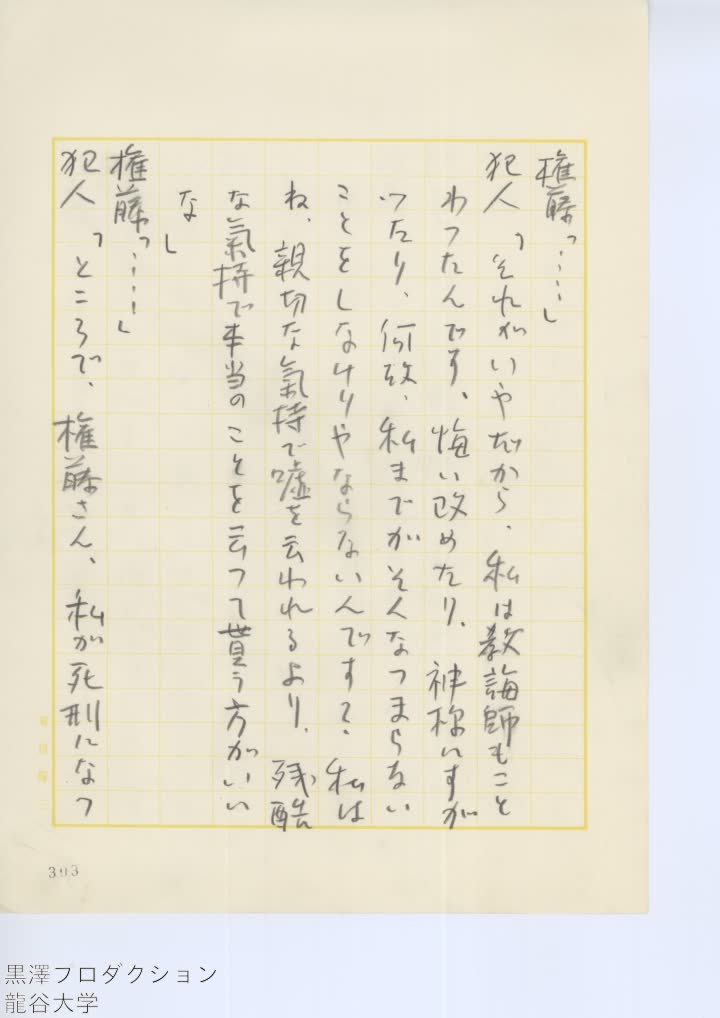 権藤「‥‥」
犯人「それがいやだから、私は教誨師もこと
わつたんです、悔い改めたり、神様にすが
つたり、何故、私までがそんなつまらない
ことをしなけりやならないんです？、私は
ね、親切な氣持で嘘を云われるより、残酷
な氣持で本当のことを云つて貰う方がいい
な」
権藤「‥‥」
犯人「ところで、権藤さん、私が死刑になつ
393
黒澤プロダクション
龍谷大学